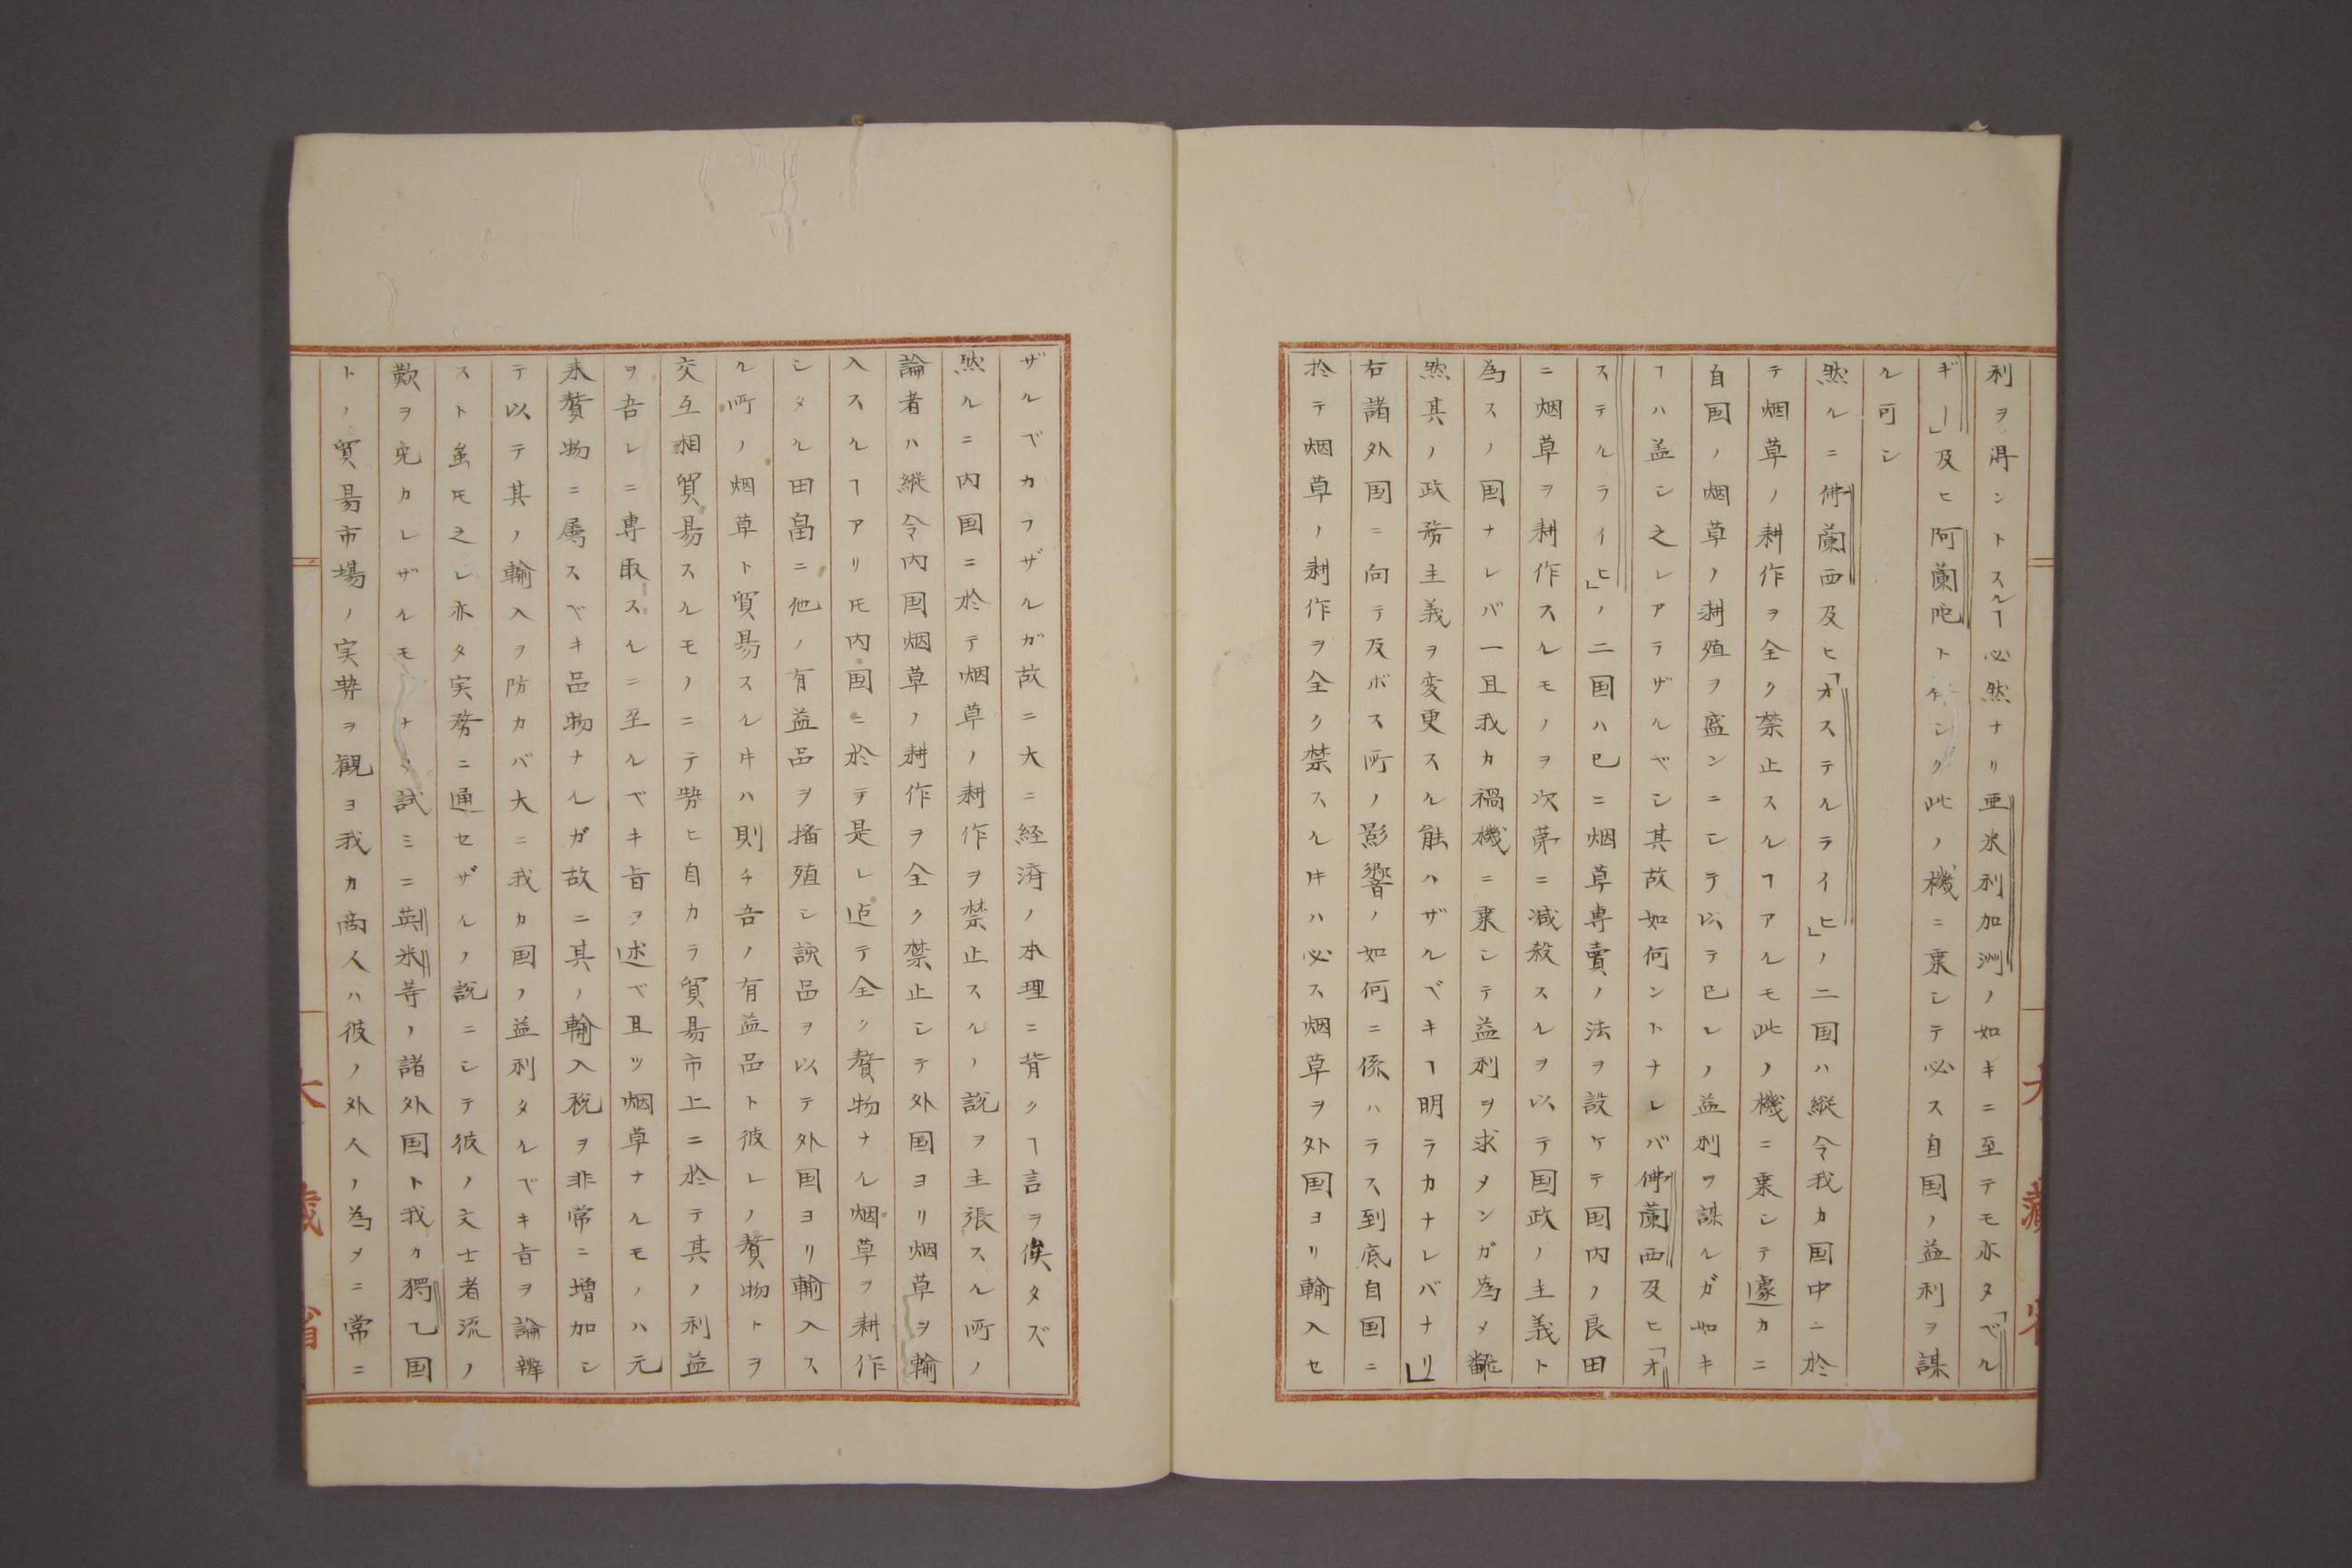 利ヲ得ントスルヿ必然ナリ亜米利加洲ノ如キニ至テモ亦タ「ベル
ギー」及ヒ阿蘭陀ト仝シク此ノ機ニ乗シテ必ス自国ノ益利ヲ謀
ル可シ
然ルニ佛蘭西及ヒ「オステルライヒ」ノ二国ハ縦令我カ国中ニ於
テ烟草ノ耕作ヲ全ク禁止スルヿアルモ此ノ機ニ乗シテ遽カニ
自国ノ烟草ノ耕殖ヲ盛ンニシテ以テ已レノ益利ヲ謀ルガ如キ
ヿハ盖シ之レアラザルベシ其故如何ントナレバ佛蘭西及ヒ「オ
ステルライヒ」ノ二国ハ已ニ烟草専賣ノ法ヲ設ケテ国内ノ良田
ニ烟草ヲ耕作スルモノヲ次第ニ減殺スルヲ以テ国政ノ主義ト
為スノ国ナレバ一旦我カ禍機ニ乗シテ益利ヲ求メンガ為メ飜
然其ノ政務主義ヲ変更スル能ハザルベキヿ明ラカナレバナリ」
右諸外国ニ向テ及ボス所ノ影響ノ如何ニ係ハラス到底自国ニ
於テ烟草ノ耕作ヲ全ク禁スル𪜈ハ必ス烟草ヲ外国ヨリ輸入セ
ザルベカラザルガ故ニ大ニ経済ノ本理ニ背クヿ言ヲ俟タズ
然ルニ内国ニ於テ烟草ノ耕作ヲ禁止スルノ説ヲ主張スル所ノ
論者ハ縦令内国烟草ノ耕作ヲ全ク禁止シテ外国ヨリ烟草ヲ輸
入スルヿアリ𪜈内国ニ於テ是レ迠テ全ク贅物ナル烟草ヲ耕作
シタル田畠ニ他ノ有益品ヲ播殖シ該品ヲ以テ外国ヨリ輸入ス
ル所ノ烟草ト貿易スル𪜈ハ則チ吾ノ有益品ト彼レノ贅物トヲ
交互相貿易スルモノニテ勢ヒ自カラ貿易市上ニ於テ其ノ利益
ヲ吾レニ専取スルニ至ルベキ旨ヲ述ベ且ツ烟草ナルモノハ元
来贅物ニ属スベキ品物ナルガ故ニ其ノ輸入税ヲ非常ニ増加シ
テ以テ其ノ輸入ヲ防カバ大ニ我カ国ノ益利タルベキ旨ヲ論辨
スト虽𪜈之レ亦タ実務ニ通セザルノ説ニシテ彼ノ文士者流ノ
歎ヲ免カレザルモノナリ試ミニ英米等ノ諸外国ト我カ獨乙国
トノ貿易市場ノ実勢ヲ観ヨ我カ商人ハ彼ノ外人ノ為メニ常ニ
大藏省